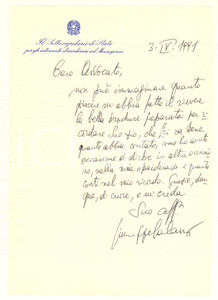 Il Sottosegretario di Stato
per gli interventi straordinari nel Mezzogiorno
3. IV. 1991
Caro Avvocato,
non può immaginare quanto
piacere mi abbia fatto il ricevere
la bella brochure preparata per ri-
cordare Suo zio, che Lei sa bene
quanto abbia contato, come ho avuto
occasione di dirle in altra occasio-
ne, nella mia esperienza e quanto
conti nel mio ricordo. Grazie, dun-
que, di cuore, e mi creda
Suo aff.